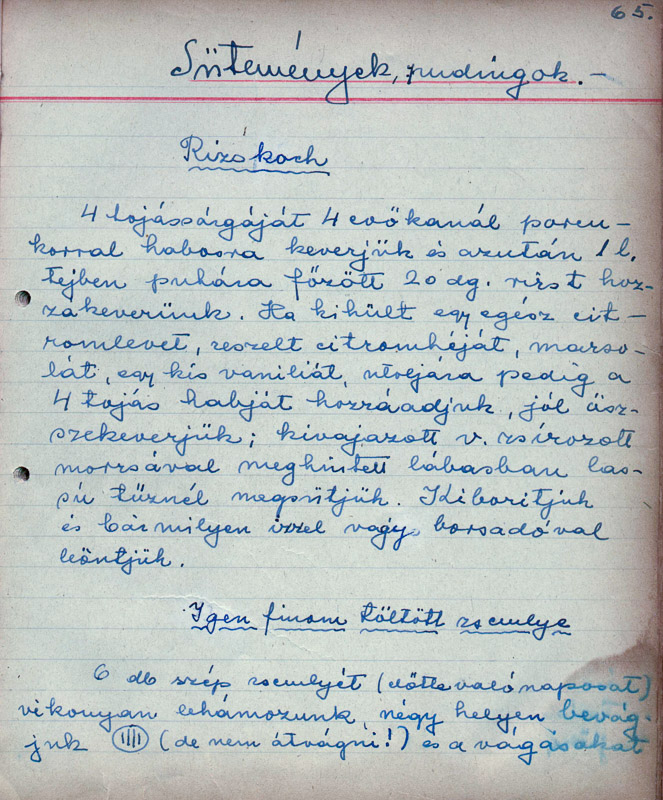 65.
Sütemények, pudingok. –
Rizskoch
4 tojássárgáját 4 evőkanál porcu-
korral habosra keverjük és azután 1 l.
tejben puhára főzött 20 dg. rizst hoz-
zákeverünk. Ha kihült egy egész cit-
romlevet, reszelt citromhéját, mazso-
lát, egy kis vaniliát, utoljára pedig a
4 tojás habját hozzáadjuk, jól ösz-
szekeverjük; kivajazott v. zsírozott
morzsával meghintett lábasban las-
sú tűznél megsütjük. Kiborítjuk
és bármilyen ízzel vagy borsadóval
leöntjük.
Igen finom töltött zsemlye
6 db szép zsemlyét (előtte való naposat)
vékonyan lehámozunk, négy helyen bevág-
juk (de nem átvágni!) és a vágásokat